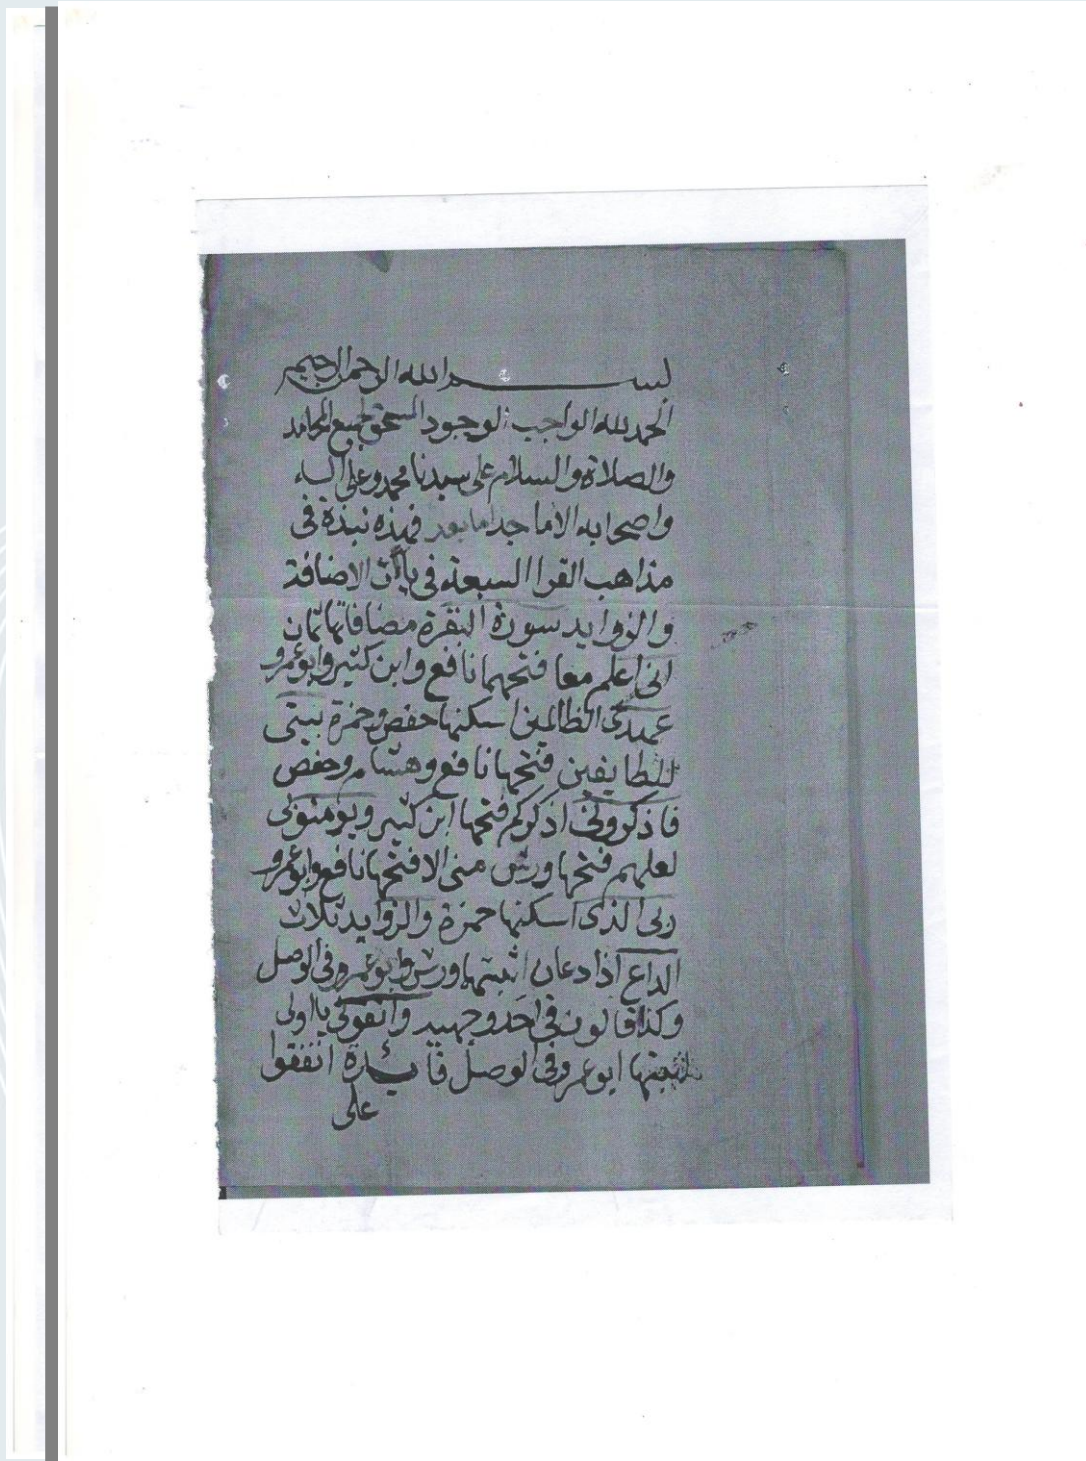 بسم الله الرحمن الرحيم
الحمد لله الواجب الوجود المستحق لجميع المحامد
والصلاة والسلام على سيدنا محمد وعلى اله
واصحابه الاماجد اما بعد فهذه نبذة فى
مذاهب القرا السبعة فى ياآت الاضافة
والزوايد سورة البقرة مضافاتها ثمان
انى اعلم معا فتحهما نافع وابن كثير وابو عمرو
عهدى الظالمين اسكنها حفص وحمزة بيتى
للطايفين فتحها نافع وهشام وحفص
فاذكرونى اذكركم فتحها ابن كثير ويومنوا بى
لعلهم فتحها ورش منى الا فتحها نافع وابو عمرو
ربى الذى اسكنها حمزة والزوايد ثلاث
الداع اذا دعان اثبتهما ورش وابو عمرو فى الوصل
وكذا قالون فى احد وجهيه واتقونى يااولى
اثبتها ابو عمرو فى الوصل فايدة اتفقوا
على